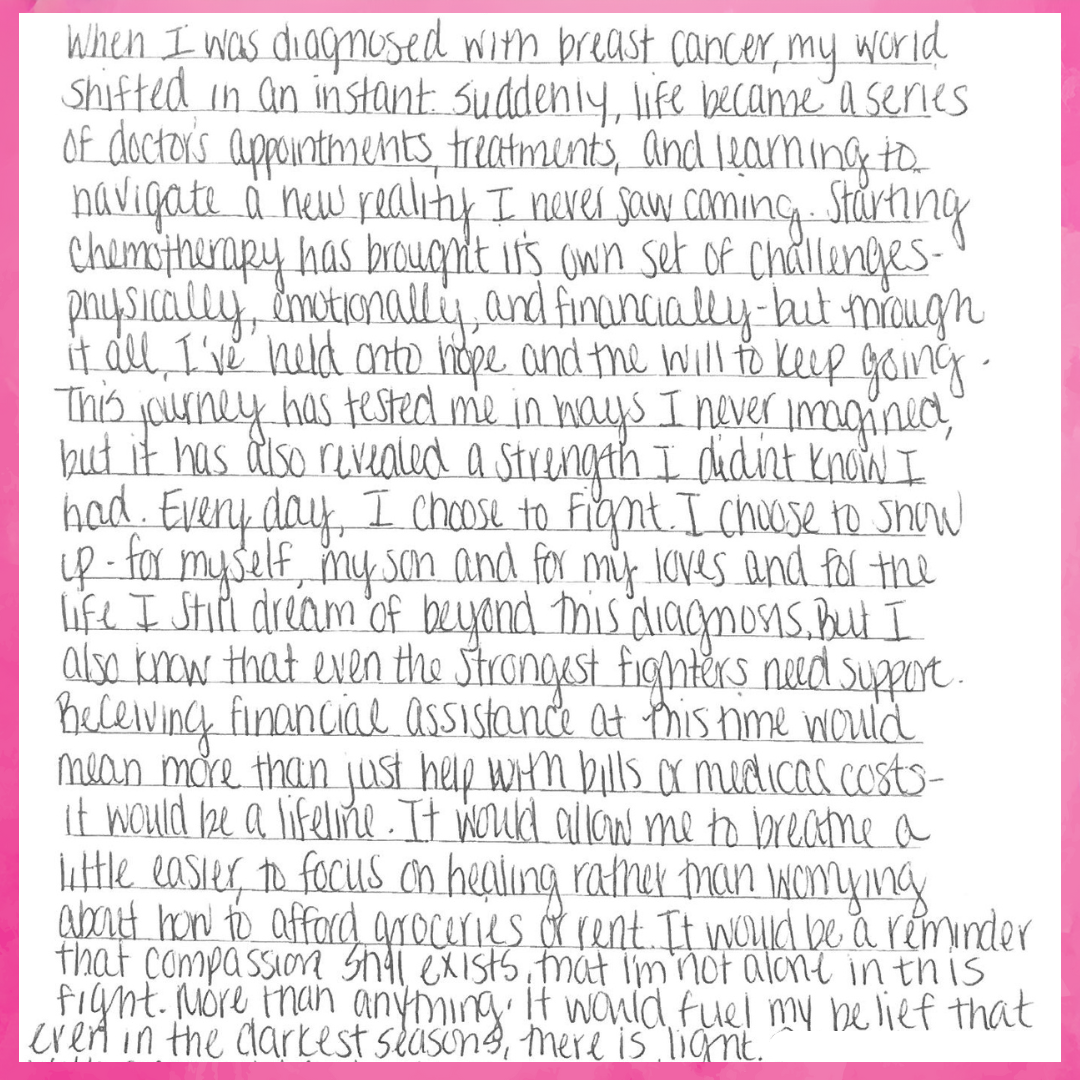 When I was diagnosed with breast cancer, my world
shifted in an instant. Suddenly, life became a series
of doctor's appointments, treatments, and learning to
navigate a new reality I never saw coming. Starting
chemotherapy has brought it's own set of challenges-
physically, emotionally, and financially-but through
it all, I've held onto hope and the will to keep going.
This journey has tested me in ways I never imagined,
but it has also revealed a strength I didn't know I
had. Every day, I choose to fight. I choose to show
up - for myself, my son and for my loves and for the
life I still dream of beyond this diagnosis. But I
also know that even the strongest fighters need support.
Receiving financial assistance at this time would
mean more than just help with bills or medical costs-
it would be a lifeline. It would allow me to breathe a
little easier, to focus on healing rather than worrying
about how to afford groceries or rent. It would be a reminder
that compassion still exists, that I'm not alone in this
fight. More than anything, it would fuel my belief that
even in the darkest seasons, there is light.